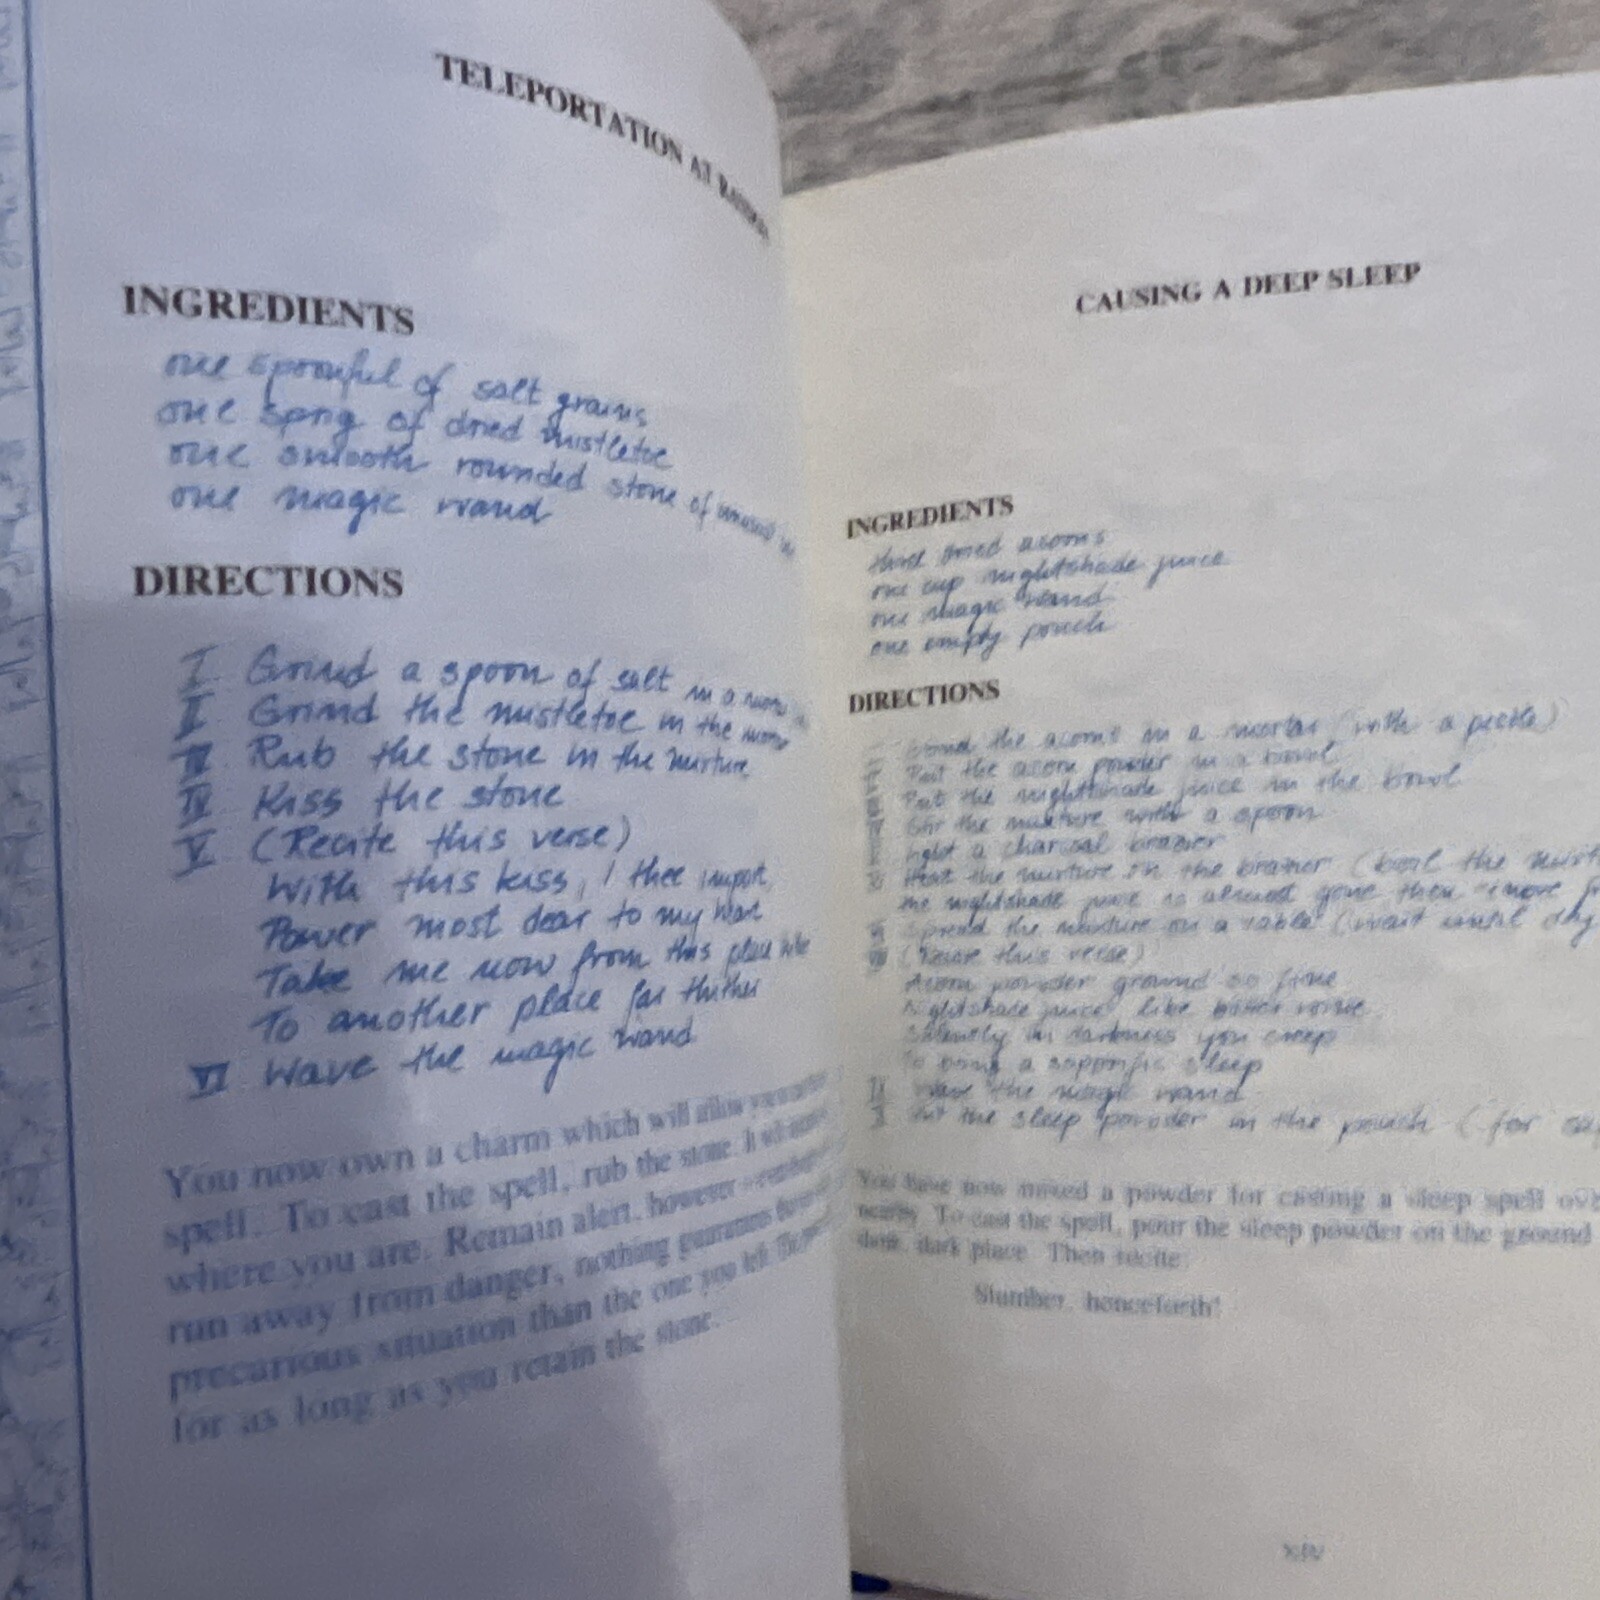 TELEPORTATION AT
INGREDIENTS
one spoonful of salt grains
one sprig of dried mistletoe
one smooth rounded stone of unusual
one magic wand
DIRECTIONS
I Grind a spoon of salt in a
II Grind the mistletoe in the
III Rub the stone in the mixture
IV Kiss the stone
V (Recite this verse)
With this kiss, I thee impart,
Power most dear to my
Take me now from this place
To another place far thither
VI Wave the magic wand
You now own a charm which will allow
spell. To cast the spell, rub the stone. It
where you are. Remain alert, however
run away from danger, nothing guarantees
precarious situation than the one you left.
for as long as you retain the stone.
CAUSING A DEEP SLEEP
INGREDIENTS
three dried acorns
one cup nightshade juice
one magic wand
one empty pouch
DIRECTIONS
Grind the acorns in a mortar (with a pestle)
Put the acorn powder in a bowl
Put the nightshade juice in the bowl
Stir the mixture with a spoon
Light a charcoal brazier
Heat the mixture on the brazier (boil the
the nightshade juice is almost gone then
Spread the mixture on a table (wait until dry
(Recite this verse)
Acorn powder ground so fine
Nightshade juice, like bitter wine
Silently in darkness you creep
To bring a soporific sleep
Wave the magic wand
Put the sleep powder in the pouch (for
You have now mixed a powder for casting a sleep spell
nearby. To cast the spell, pour the sleep powder on the ground
dark place. Then recite:
Slumber, henceforth!
XIV